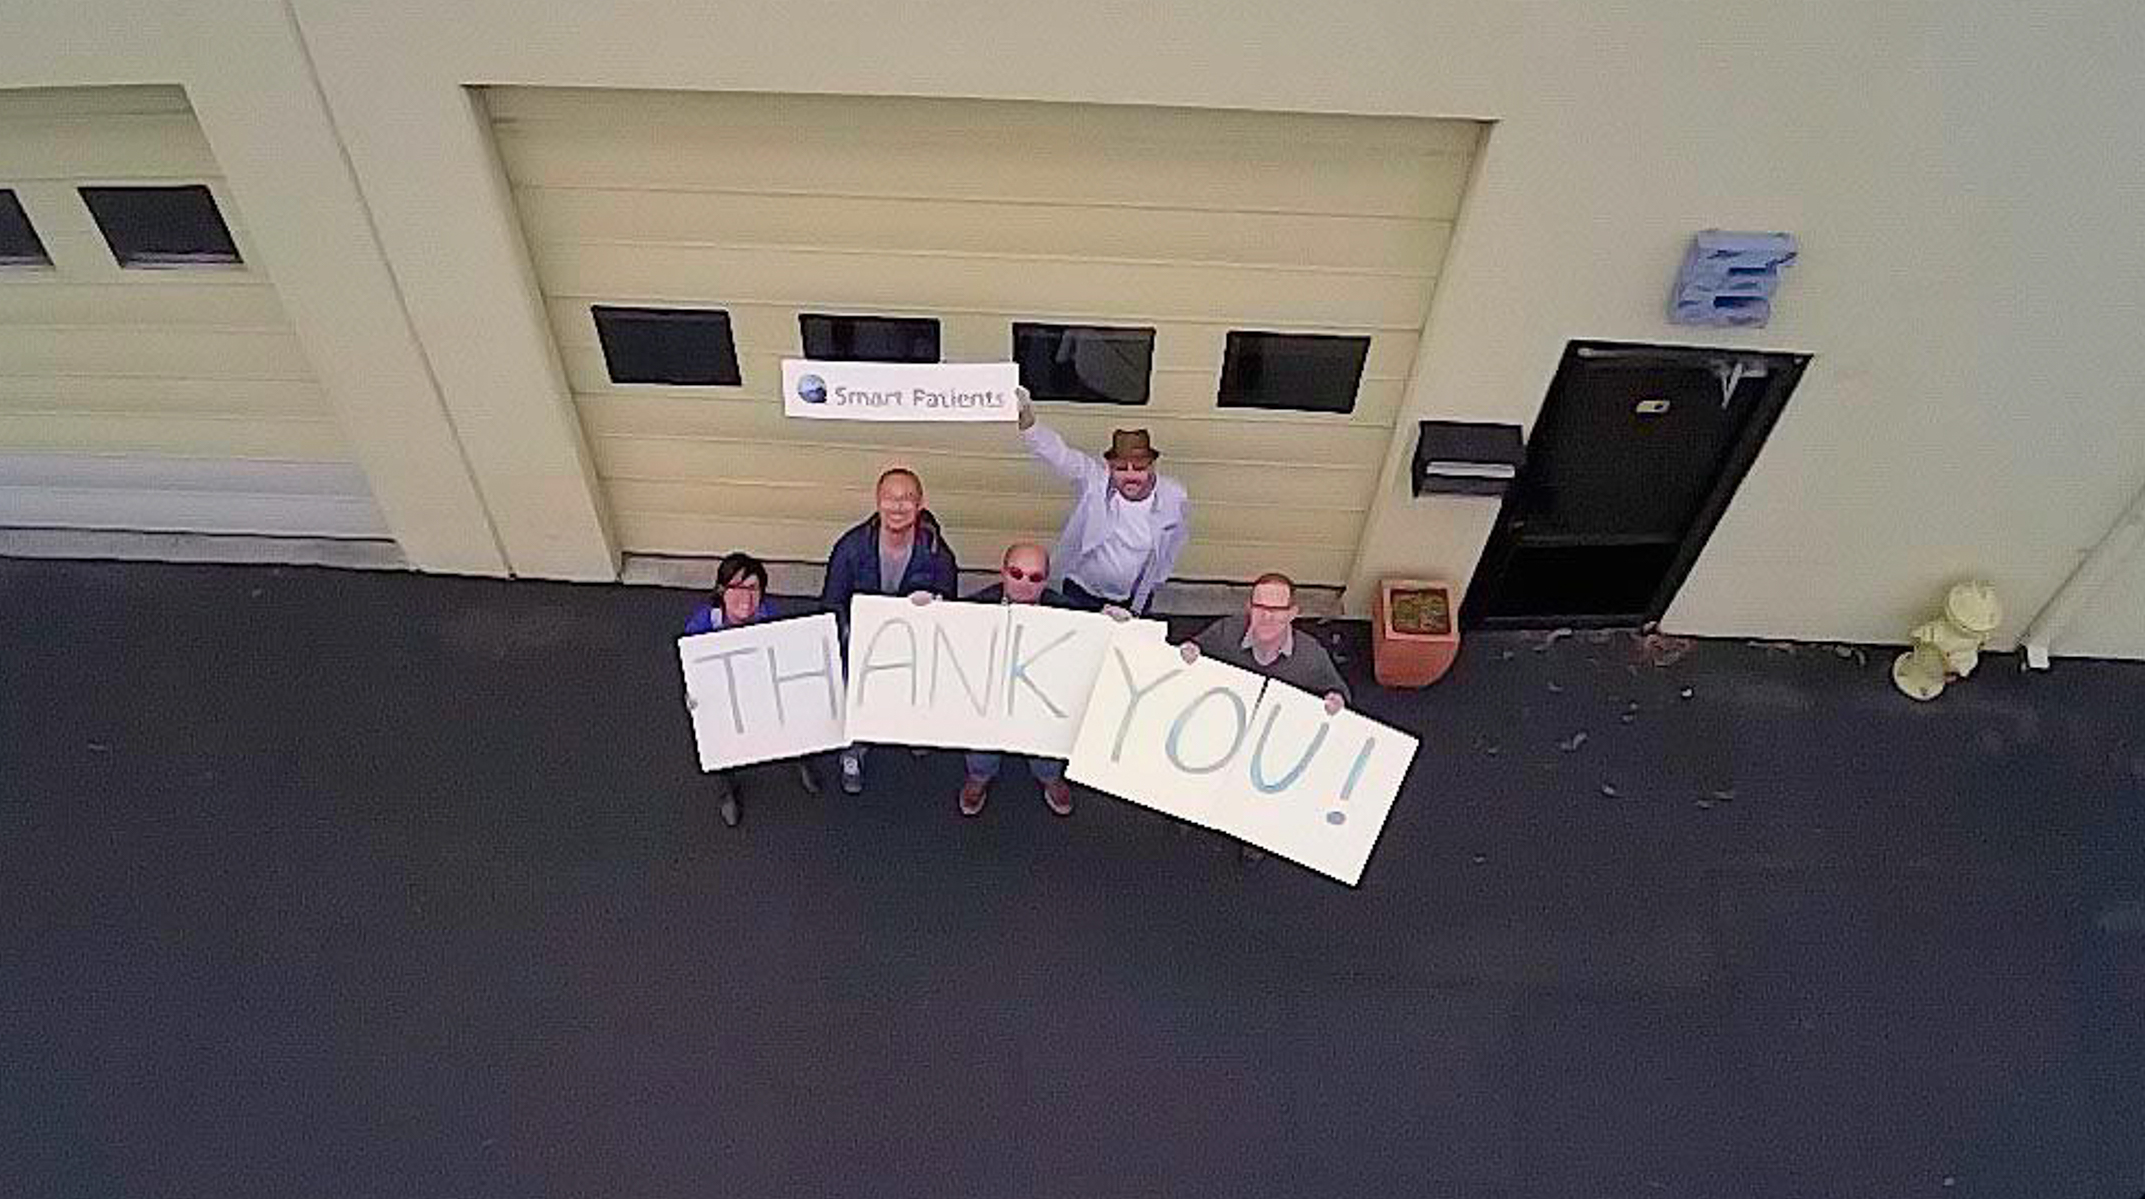 Smart Patients
THANK YOU!